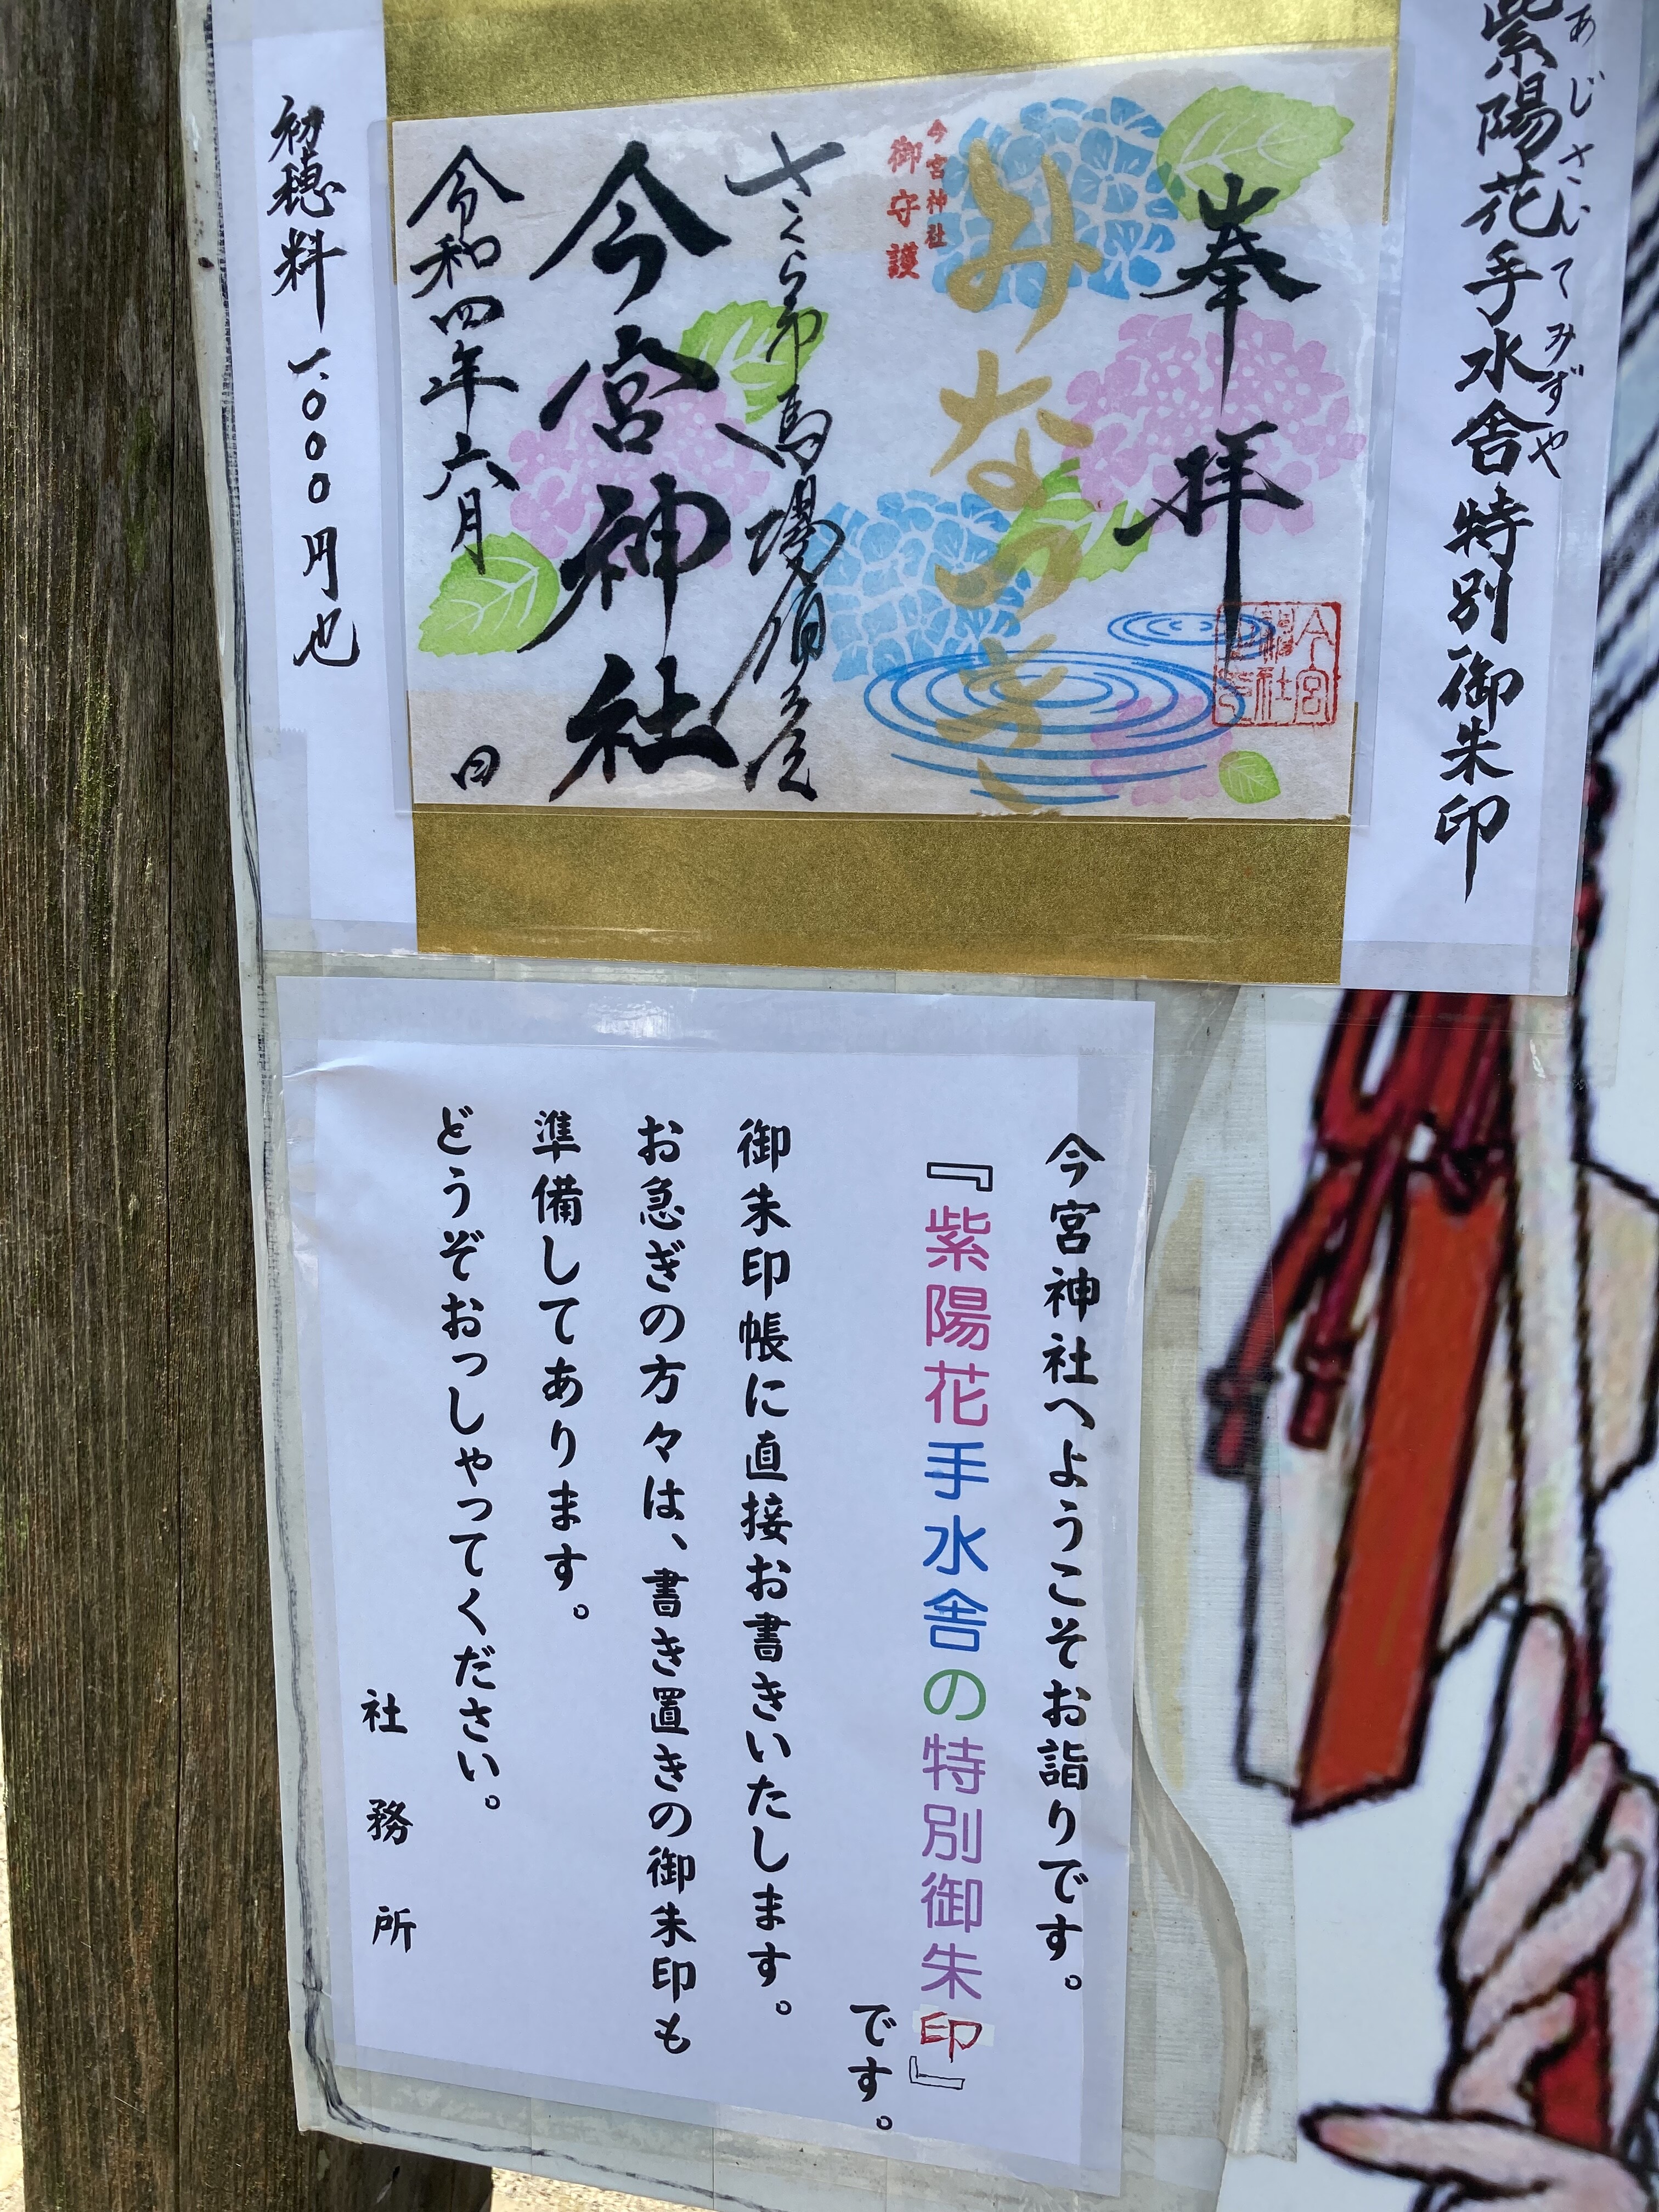 紫陽花手水舎特別御朱印
あじさいてみずや
奉拝
みなづき
今宮神社
御守護
さくら市馬場宿鎮座
今宮神社
令和四年六月 日
初穂料 一、〇〇〇円也
今宮神社へようこそお詣りです。
『紫陽花手水舎の特別御朱印』
です。
御朱印帳に直接お書きいたします。
お急ぎの方々は、書き置きの御朱印も
準備してあります。
どうぞおっしゃってください。
社務所